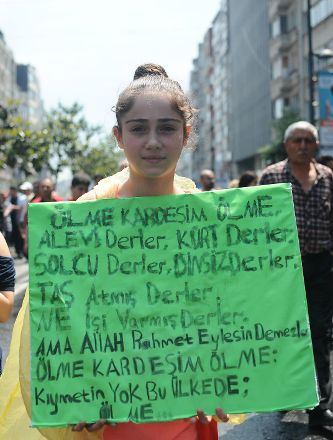 ÖLME KARDEŞİM ÖLME.
ALEVİ Derler, KÜRT Derler.
SOLCU Derler, DİNSİZ Derler.
TAŞ Atmış Derler.
NE işi Varmış Derler.
AMA Allah Rahmet Eylesin Demezler
ÖLME KARDEŞİM ÖLME:
Kıymetin Yok Bu ÜLKEDE;
ÖLME...